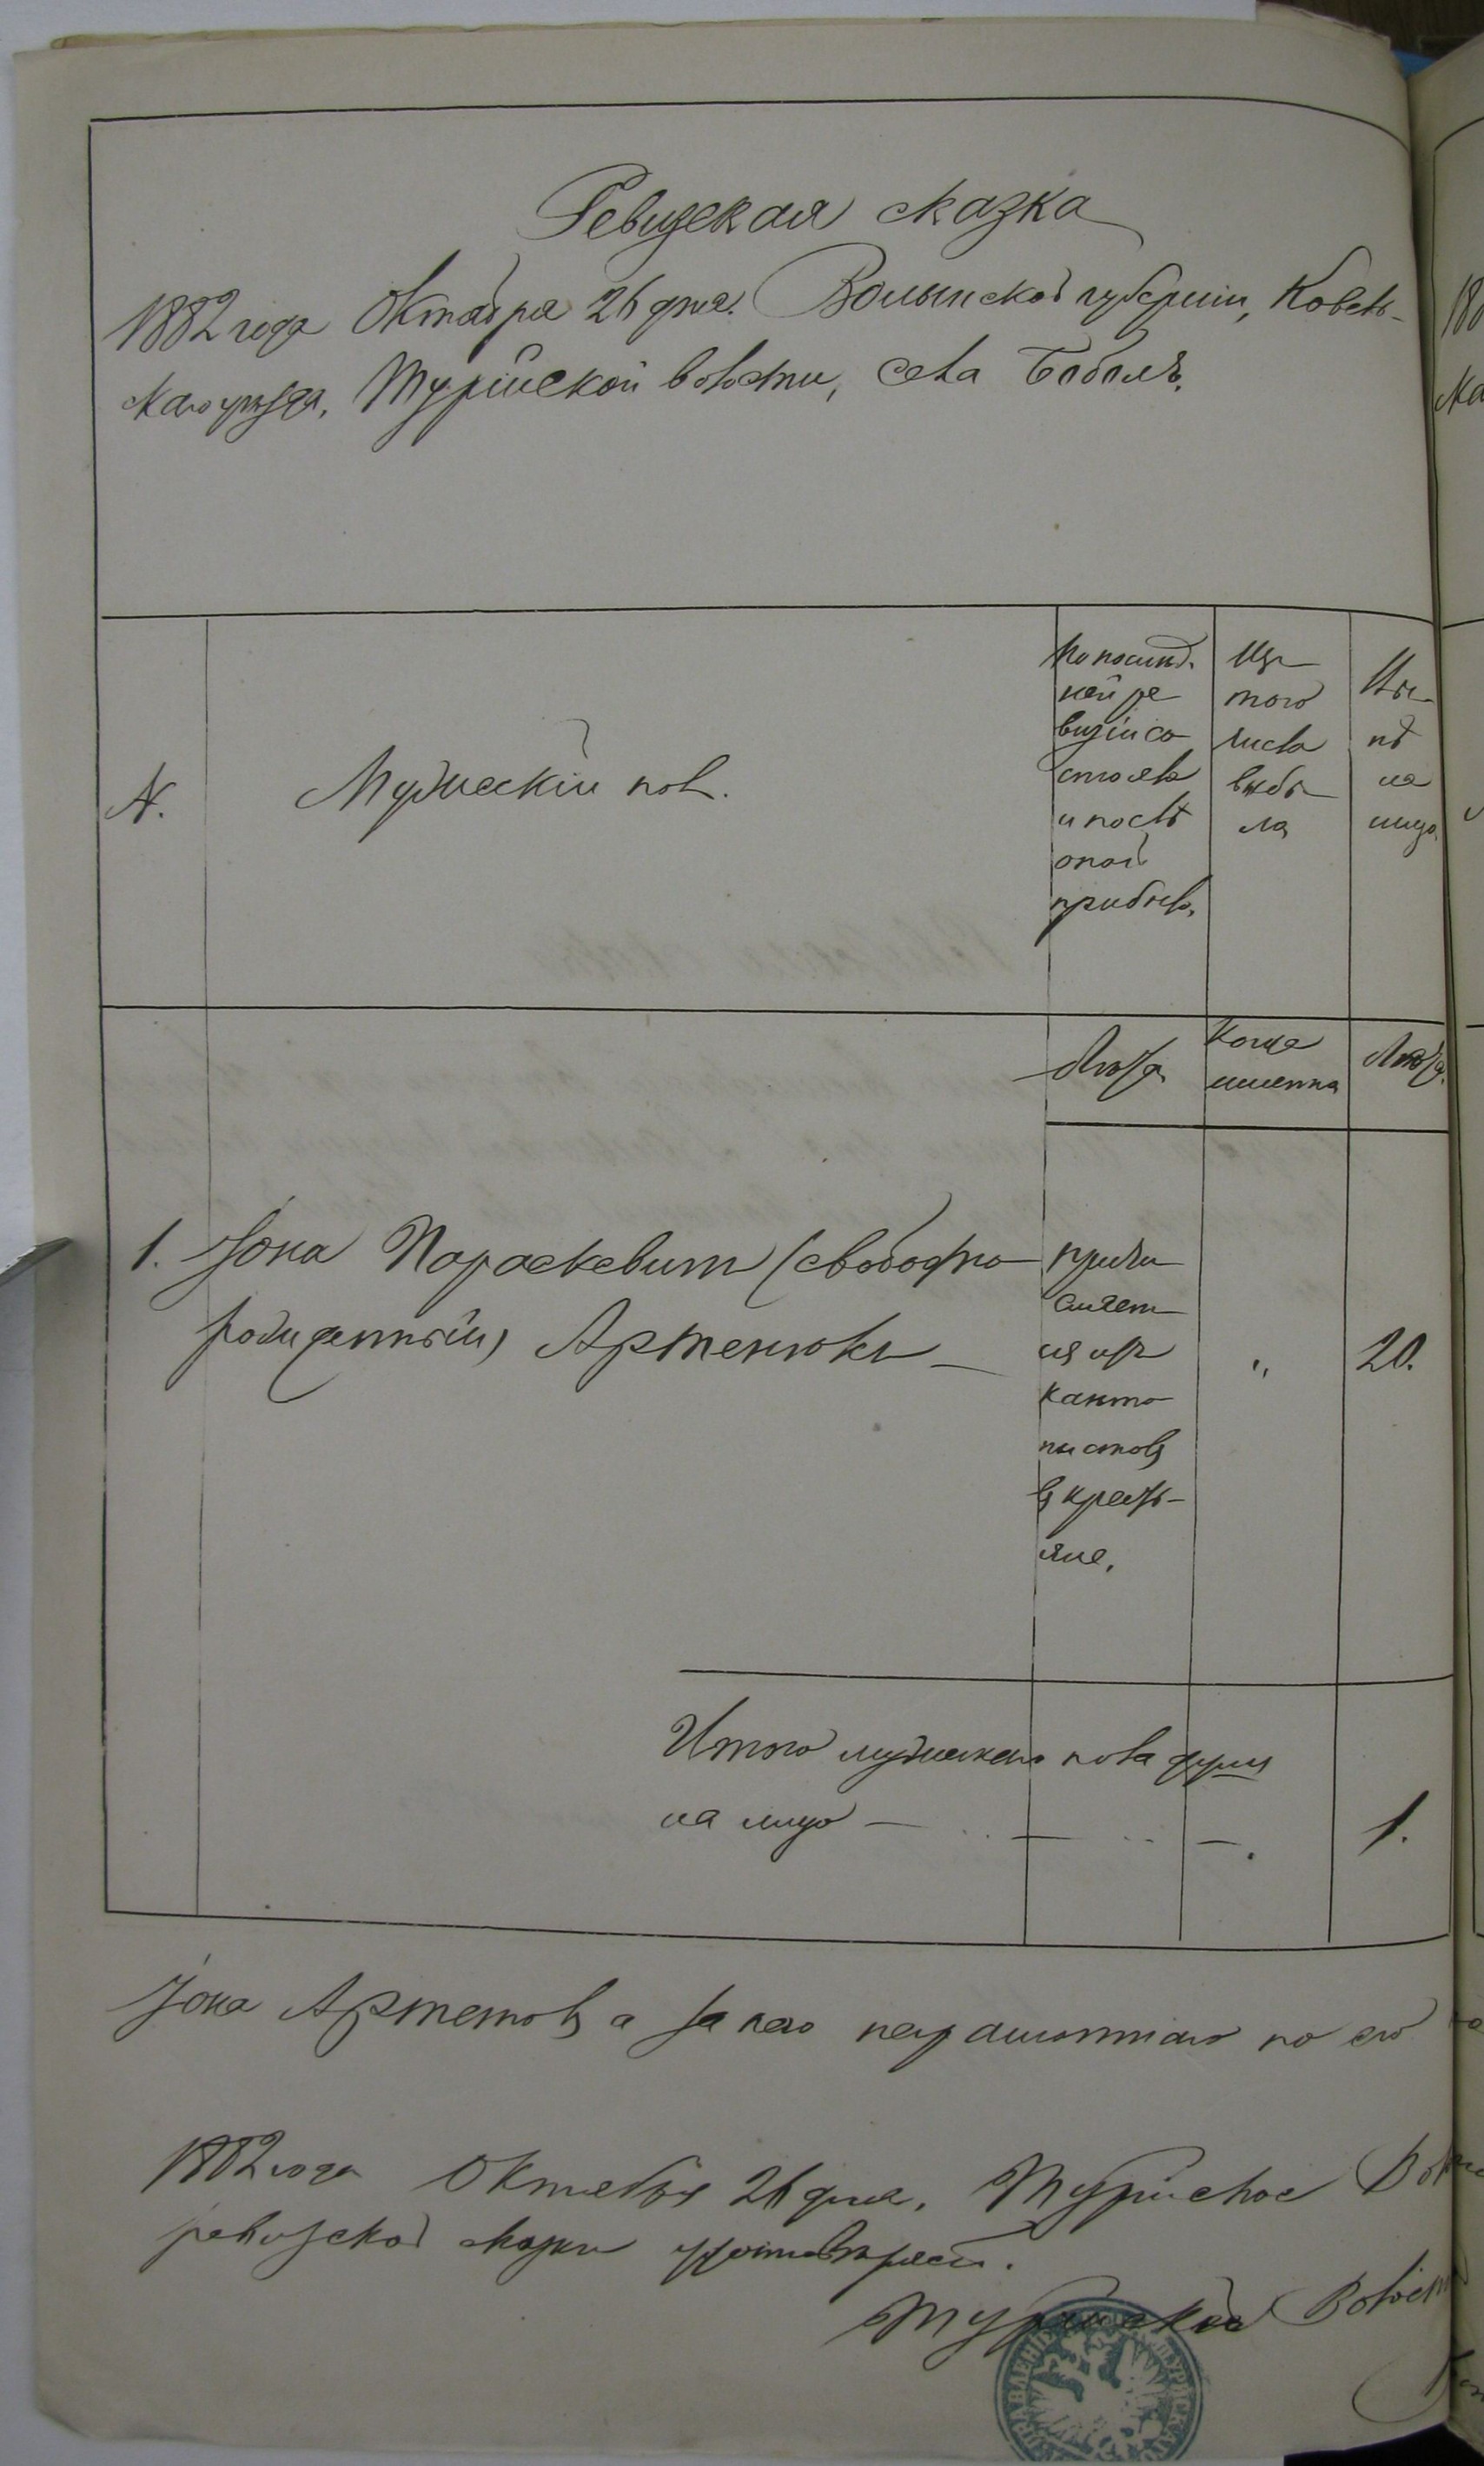 Ревизская сказка
1882 года Октября 26 дня. Волынской губернии, Ковель-
скаго уѣзда, Турійской волости, села Боболъ.
N.
Мужескій полъ.
По послѣд.
ней ре
визіи со
стояло
и послѣ
оной
прибыло,
Изъ
того
числа
выбы
ло
Ны-
нѣ
на
лицо
Лѣта
Когда
именно
Лѣта.
1. Іона Параскевинъ (свободно
рожденный) Артемюкъ —
причи
сляет
ся изъ
канто
нистовъ
въ кресть-
яне,
"
20.
Итого мужескаго пола душъ
на лицо —
1.
Іона Артемовъ а за него неграмотнаго по его
1882 года Октября 26 дня. Турійское
ревизской сказки удостовѣряетъ.
Турійскій Волост